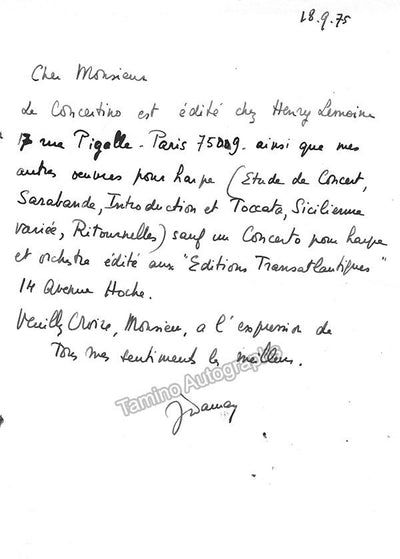 18.9.75
Cher Monsieur
Le Concertino est édité chez Henry Lemoine
17 rue Pigalle - Paris 75009. ainsi que mes
autres oeuvres pour harpe (Etude de Concert,
Sarabande, Introduction et Toccata, Sicilienne
variée, Ritournelles) sauf un Concerto pour harpe
et orchestre édité aux "Editions Transatlantiques"
14 Avenue Hoche.
Veuillez Croire, Monsieur, a l'expression de
Tous mes sentiments les meilleurs.
Tamino Autographs
JDamase